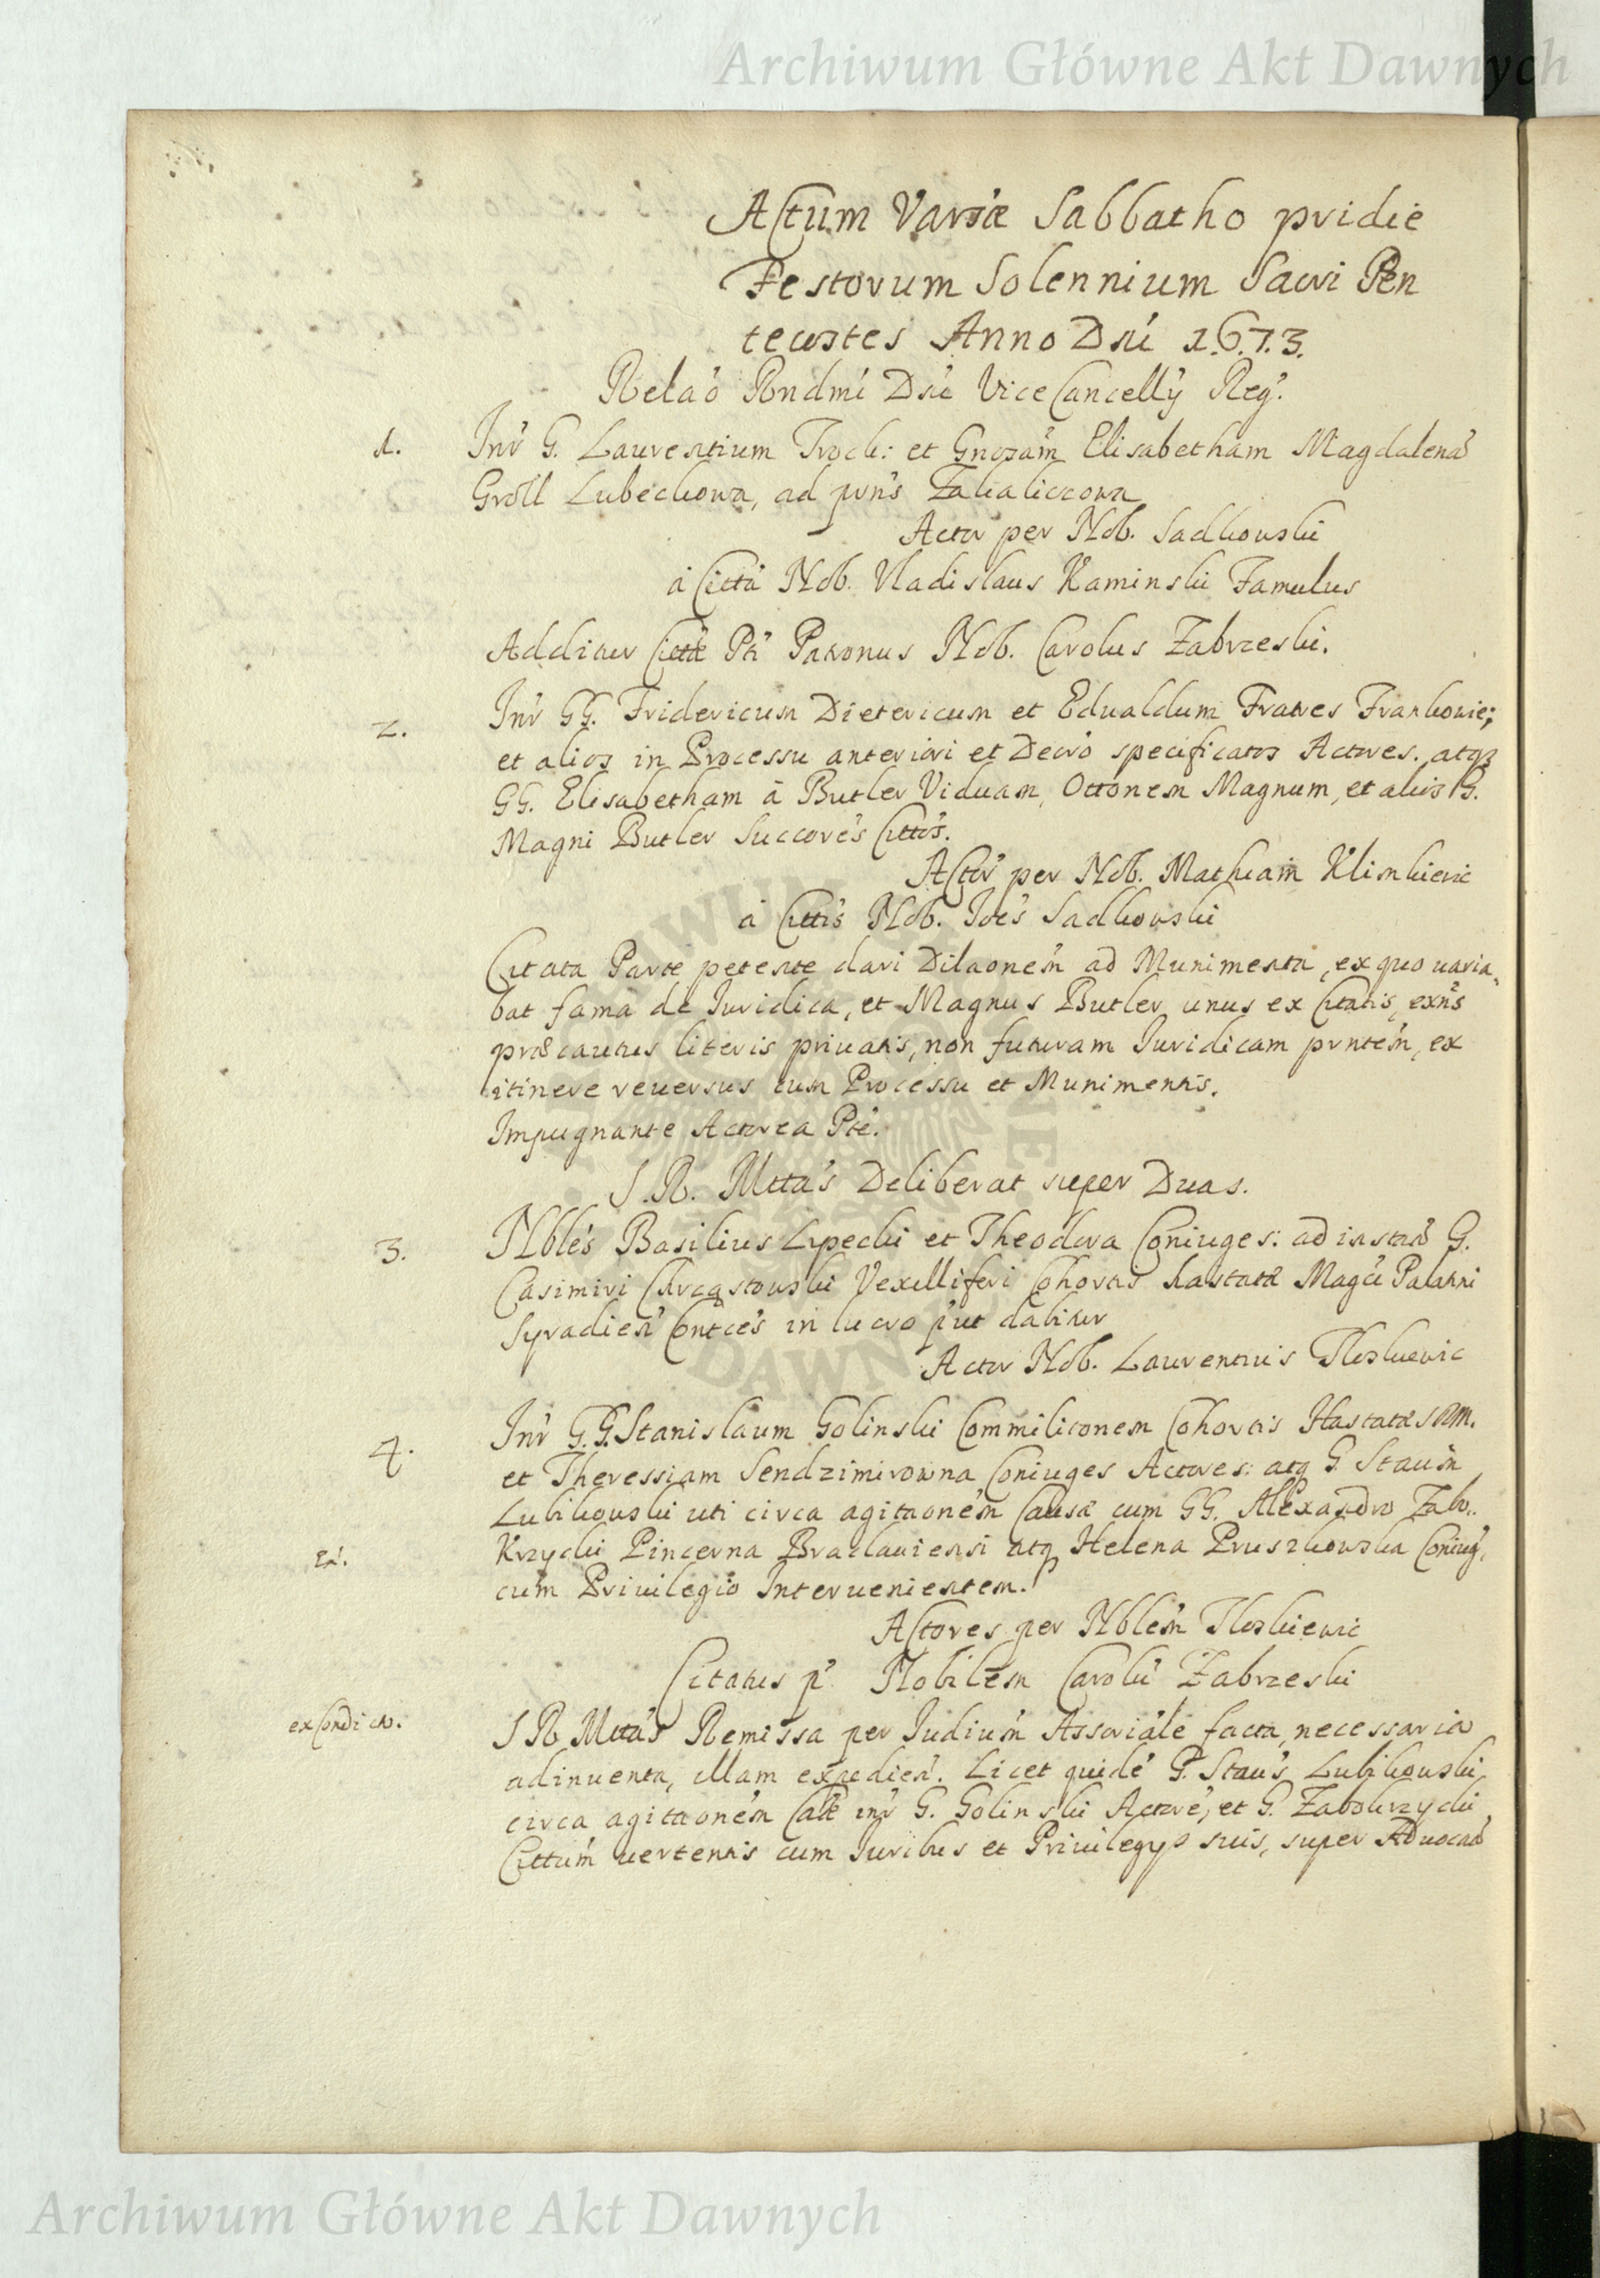 Archiwum Główne Akt Dawnych
Actum Varsae Sabbatho pridie
Festorum Solennium Sacri Pen
tecostes Anno Dni 1.6.7.3.
Relao Rndmi Dni ViceCancellÿ Reg.
1. Inr G. Laurentium Troch: et Gnosam Elisabetham Magdalena
Groll Lubeckowa, ad prns
Actor per Nob. Sadkowski
á Citta Nob. Vladislaus Kaminski Famulus
Additur Cittae Pti Patronus Nob. Carolus Zabrzeski.
2. Inr GG. Fridericum Dietericum et Edualdum Fratres Frankowie;
et alios in Processu anteriori et Decro specificatos Actores. atqz
GG. Elisabetham á Butler Viduam, Ottonem Magnum, et alios G.
Magni Butler Succores Cittos.
Actor per Nob. Mathiam Klimkiewic
á Cittis Nob. Joes Sadkowski
Citata Parte petente dari Dilaonem ad Munimenta, ex quo varia
bat fama de Juridica, et Magnus Butler unus ex Citatis, exns
praecautus literis privatis, non futuram Juridicam prntem, ex
itinere reversus cum Processu et Munimentis.
Impugnante Actorea Pte.
S.R. Mttas Deliberat super Duas.
3. Nbles Basilius Lipecki et Theodora Coniuges: ad instan G.
Casimiri Chrząstowski Vexilliferi Cohortis hastatae Magci Palatini
Syradien Contces in lucro put dabitur
Actor Nob. Laurentius
4. Inr G.G. Stanislaum Golinski Commilitonem Cohortis Hastatae SRM.
et Theressiam Sendzimirowna Coniuges Actores: atq G. Staum
Lubikowski uti circa agitaonem Causae cum GG. Alexandro Zabo..
Ex. Krzycki Pincerna Braclaviensi atq Helena Pruszkowska Coniug.
cum Privilegio Intervenientem.
Actores per Nblem
Citatus p Nobilem Carolu Zabrzeski
ex S R Mttas Remissa per Judium Assoriale facta, necessaria
adinventa, illam expedien. Licet quide G. Staus Lubikowski
circa agitaonem Cae inr G. Golinski Actore, et G. Zabokrzycki
Cittum vertentis cum Juribus et Privilegÿs suis, super Advocao
Archiwum Główne Akt Dawnych